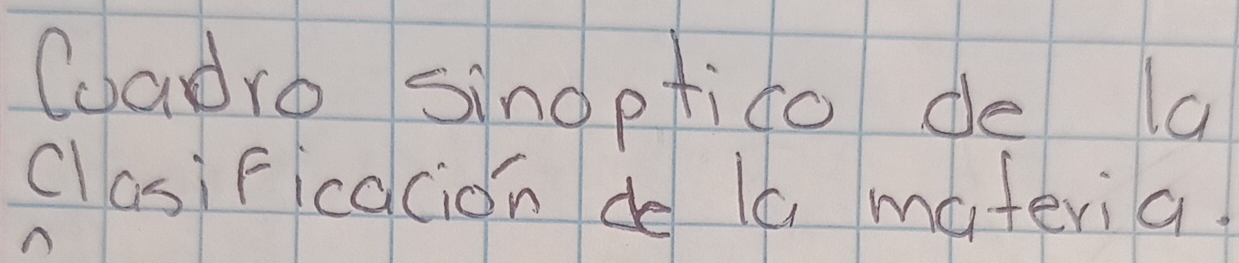 Cuadro sinoptico de la
Clasificación de la materia.